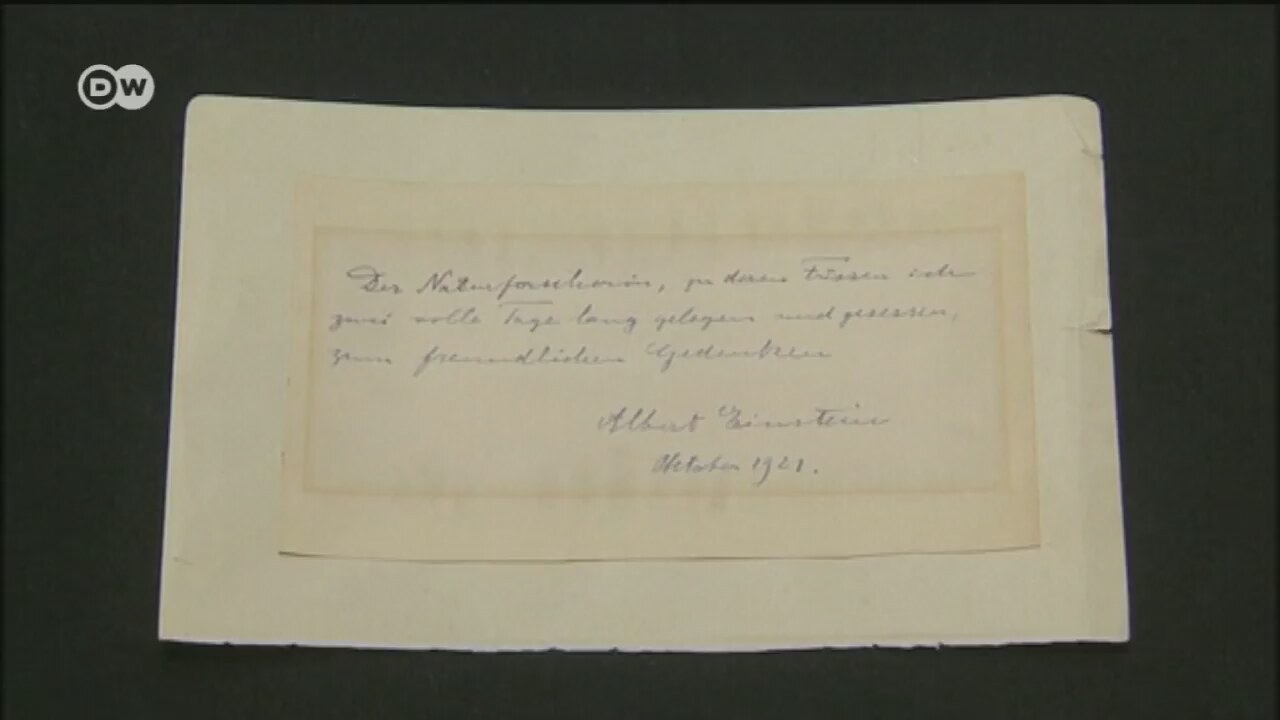 DW
Der Naturforscherin, zu deren Füssen ich
zwei volle Tage lang gelegen und gesessen,
zum freundlichen Gedenken
Albert Einstein
Oktober 1921.